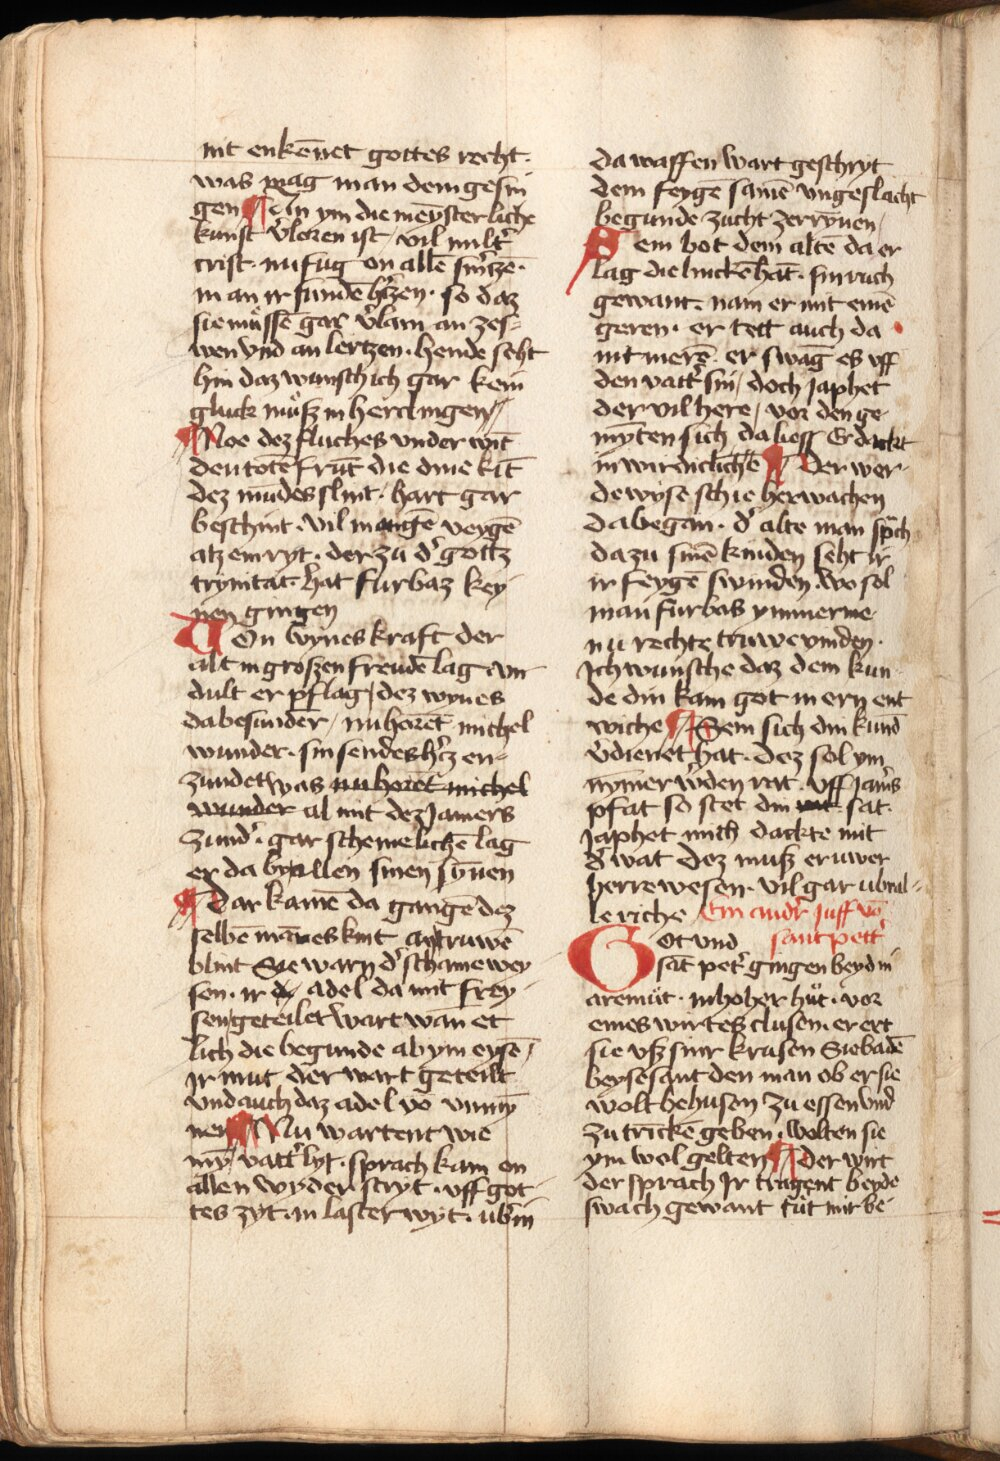 nit enkēnet gottes recht·
was mag man dem gesin
gen ¶ An ym die meysterliche
kunst v̓loren ist / vil milt̓
crist· nu fug on allē sm̓tzē·
in an ir sundē h̓tzen· so daz
sie müssē gar v̓larn an zes=
wen vnd an lertzen· hende seht
hin daz wunsch ich gar kein
gluck müsz in her clingen //
¶ Noe dez fluches vnder wīt
den totē frūt die dine kīt
dez mūdes slint· hart gar
beschint· vil mangē veygē
atz em ryt· der zu d̓ gottz
trynitat hat furbaz key
nen gingen
Uon wynes kraft der
alt in groszen freudē lag· vn
dult er pflag / dez wynes
da besunder / nu horet michel
wunder· sin sendes h̓tz en=
zundet was nu horet michel
wunder al mit dez Jamers
zund̓· gar schemelichē lag
er da by allen sinen sȳnen
¶ Dar kamē da gangē dez
selbē mānes kint an truwē
blint Sie warn d̓ schame wey
sen· ir adel da mit frey
sen geteilet wart wān et
lich die begunde ab ym eysē /
Ir mut der wart geteilt
vnd auch daz adel vō vnnȳ
nen ¶ Nu wartent wie
mȳ vatt̓ lyt· sprach kam on
allen wyder stryt· vff got
tes zyt· in laster wyt· ub̓ in
da waffen wart geschryt
dem feygē samē vngeslacht
begunde zucht zerrȳnen /
Sem bot dem altē da er
lag die linckē hāt· sin ruch
gewant· nam er mit einē
geren· er tett auch da
mit merē· er swāg es vff
den vatt̓ sin / doch Japhet
der vil here / vor den ge
mȳten sich da liess Er dackt
in wirdiclichē ¶ Der wer
de wyse schie herwachen
da began· d̓ alte man sp̄ch
da zu sinē kinden seht ir
ir feygē swinden· wo sol
man furbas ymmer me
nu rechte truwe vinden·
Ich wunsche daz dem kun
de din kam got in ern ent
wiche ¶ Sem sich din kund
v̓dienet hat· dez sol ym
nȳmer w̓den rat· vff Jam̓s
pfat so stet din sat·
Japhet mich dackte mit
d̓ wat dez musz er uwer
herre wesen· vil gar ub̓ral=
le riche Ein and̓r Juff vō
Got vnd sant pett̓
sāt pet̓ gingen beyd in
aremüt· in hoher hüt· vor
eines wirtes clusen· er ert
sie vsz sinr krusen Sie badē
beyse sant den man ob er sie
wolt behusen zu essen vnd
zu trīcke geben· wolten sie
ym wol gelten ¶ Der wirt
der sprach Ir tragent beyde
swach gewant tüt mir be